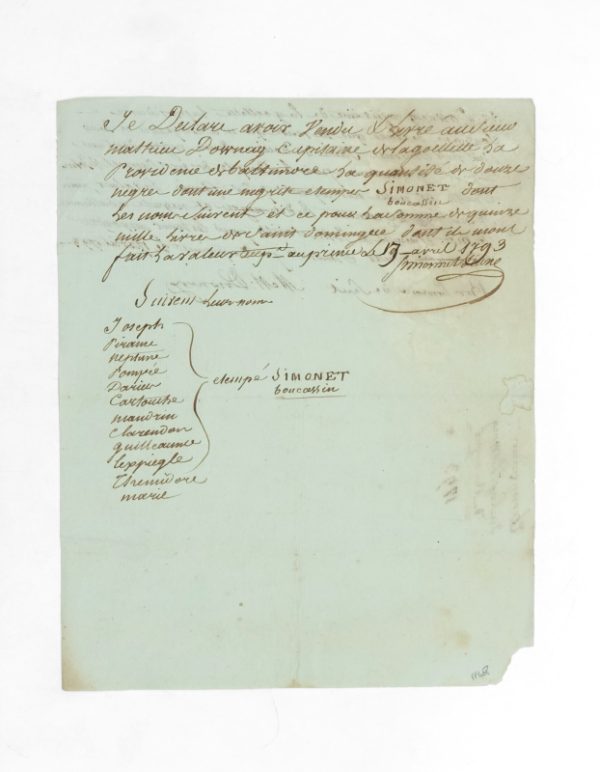 Je Declare avoir Vendu & livre au Sieur
mathieu Downey Capitaine de la goellette La
Providence de baltimore La quantité de douze
negres dont une negrite etampé SIMONET dont
boucassin
Les noms Suivent et ce pour La Somme de quinze
mille livre de Saint domingue dont il m'ont
fait La valeur au prime le 17 avril 1793
Suivent Leur nom
Joseph
Pirame
neptune
Pompée
Darius
Cartouche
mandrin
Clarendon
guilleaume
Lexpiegle
Themidore
marie
etempé SIMONET
boucassin